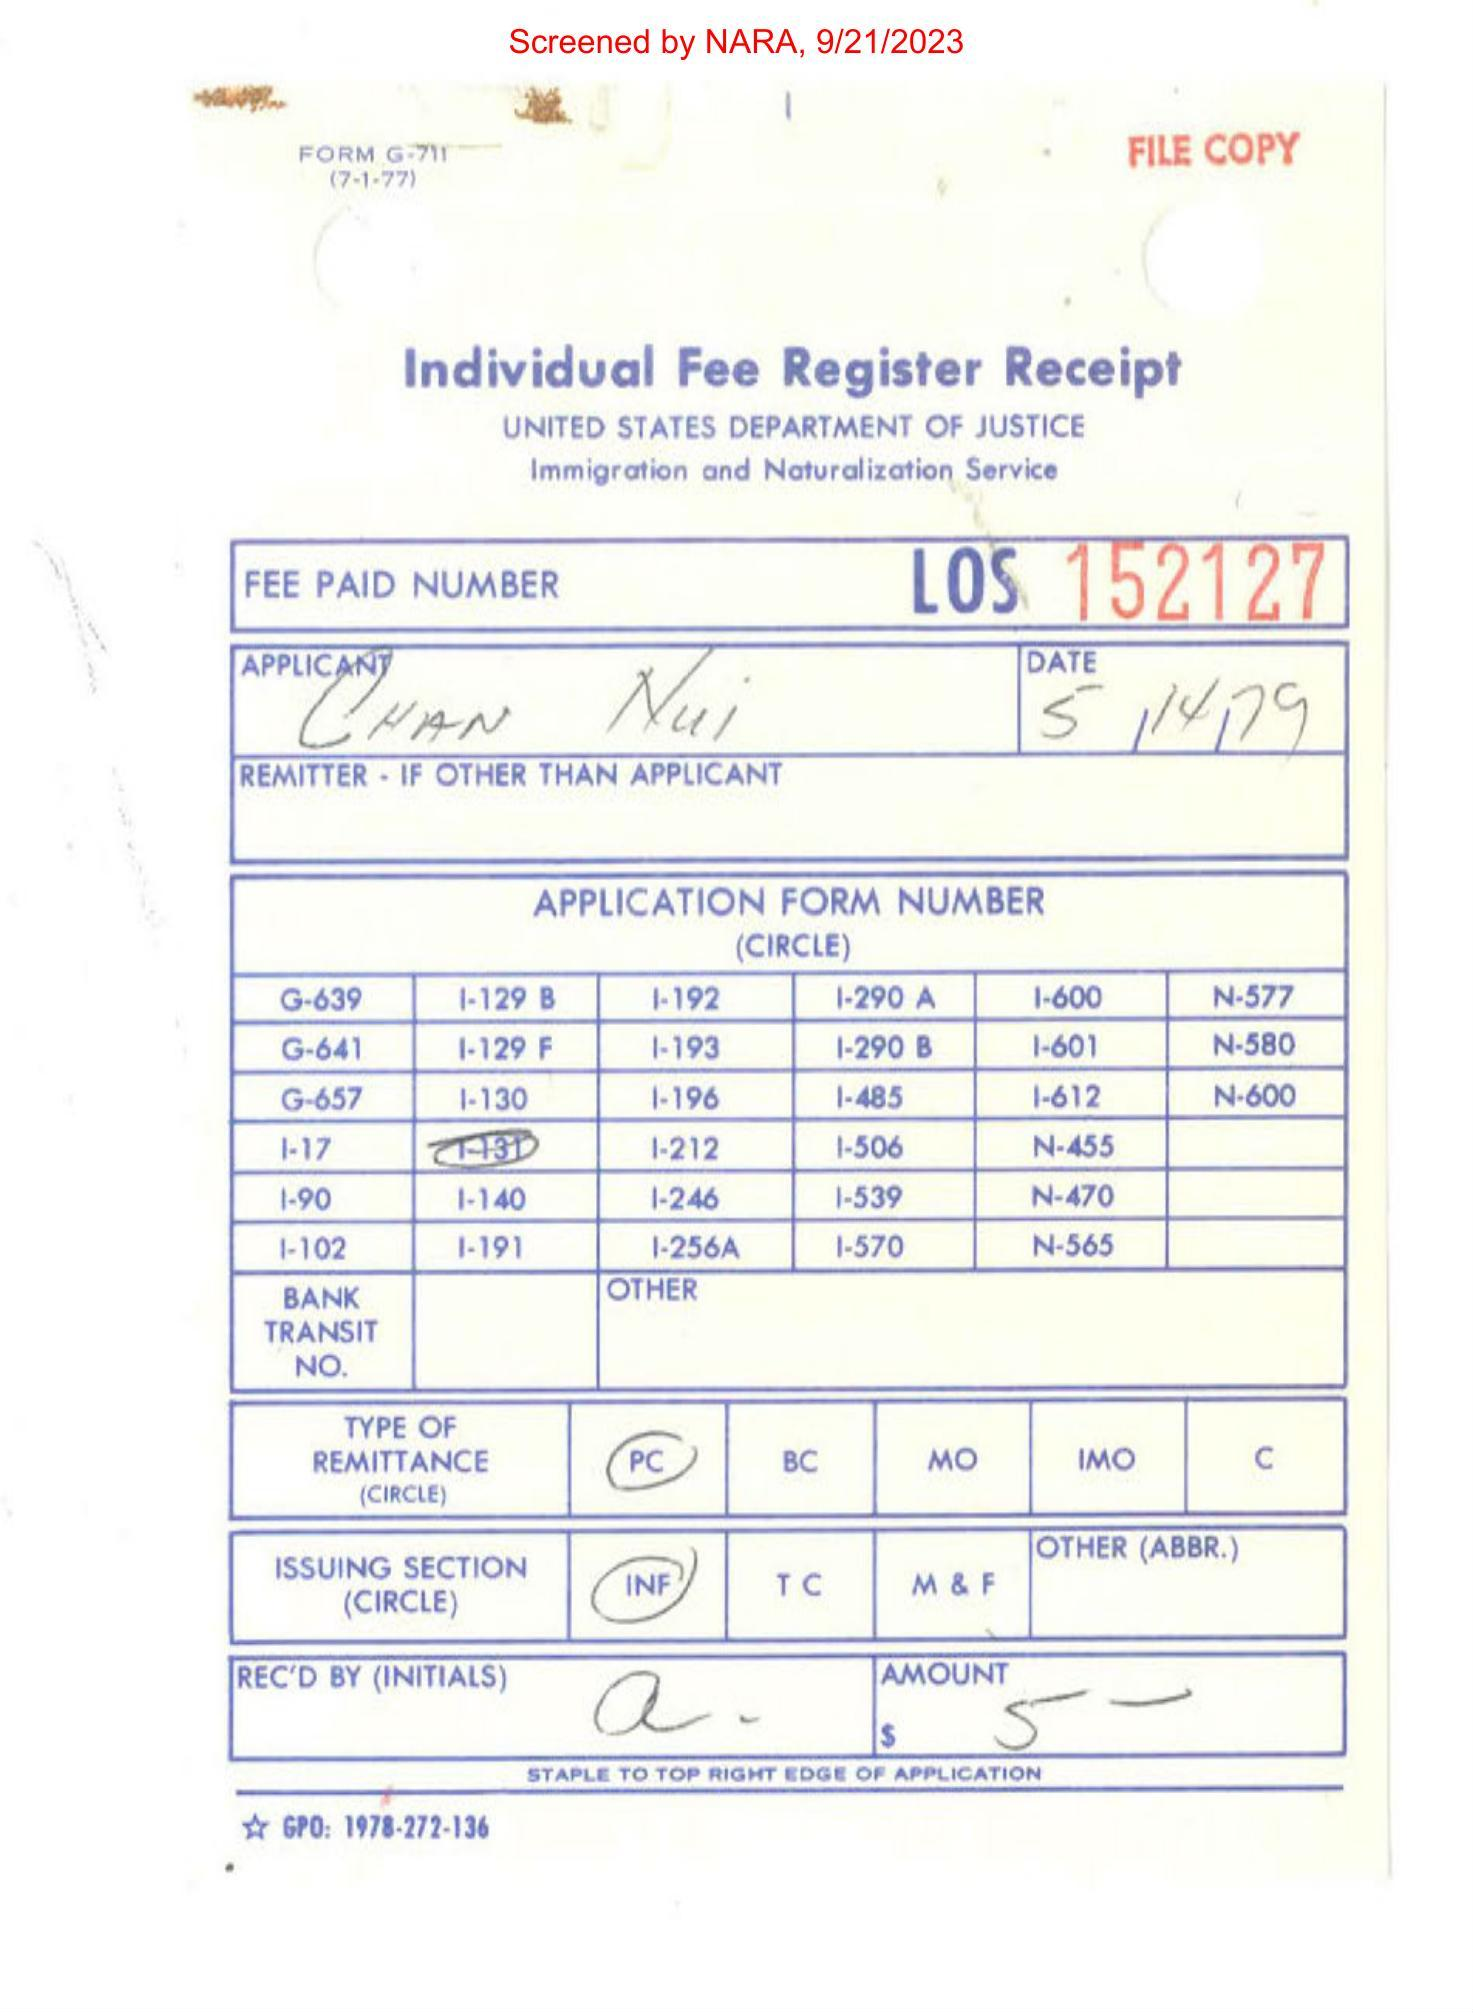 Screened by NARA, 9/21/2023
FORM G-711
(7-1-77)
FILE COPY
Individual Fee Register Receipt
UNITED STATES DEPARTMENT OF JUSTICE
Immigration and Naturalization Service
FEE PAID NUMBER LOS 152127
APPLICANT DATE
CHAN Nui 5/14/79
REMITTER - IF OTHER THAN APPLICANT
APPLICATION FORM NUMBER
(CIRCLE)
G-639 I-129 B I-192 I-290 A I-600 N-577
G-641 I-129 F I-193 I-290 B I-601 N-580
G-657 I-130 I-196 I-485 I-612 N-600
I-17 I-131 I-212 I-506 N-455
I-90 I-140 I-246 I-539 N-470
I-102 I-191 I-256A I-570 N-565
BANK TRANSIT NO.
OTHER
TYPE OF REMITTANCE (CIRCLE) PC BC MO IMO C
ISSUING SECTION (CIRCLE) INF T C M & F OTHER (ABBR.)
REC'D BY (INITIALS) a. AMOUNT
$ 5 —
STAPLE TO TOP RIGHT EDGE OF APPLICATION
☆ GPO: 1978-272-136